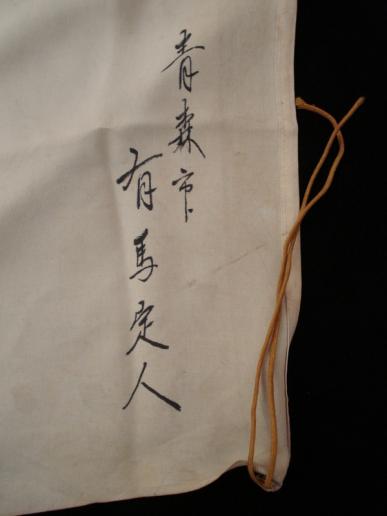 青森市
有馬定人